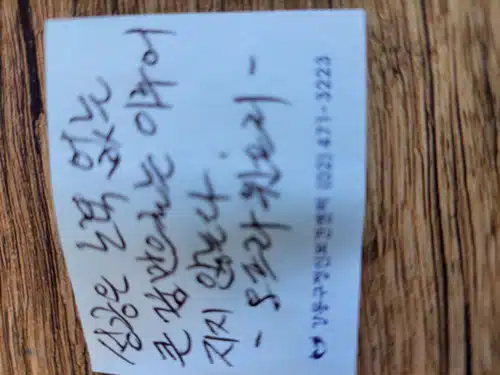 성공은 노력 없는
큰 꿈만으로는 이루어
지지 않는다.
- 오프라 윈프리 -
강동구정신보건센터 (02) 471-3223